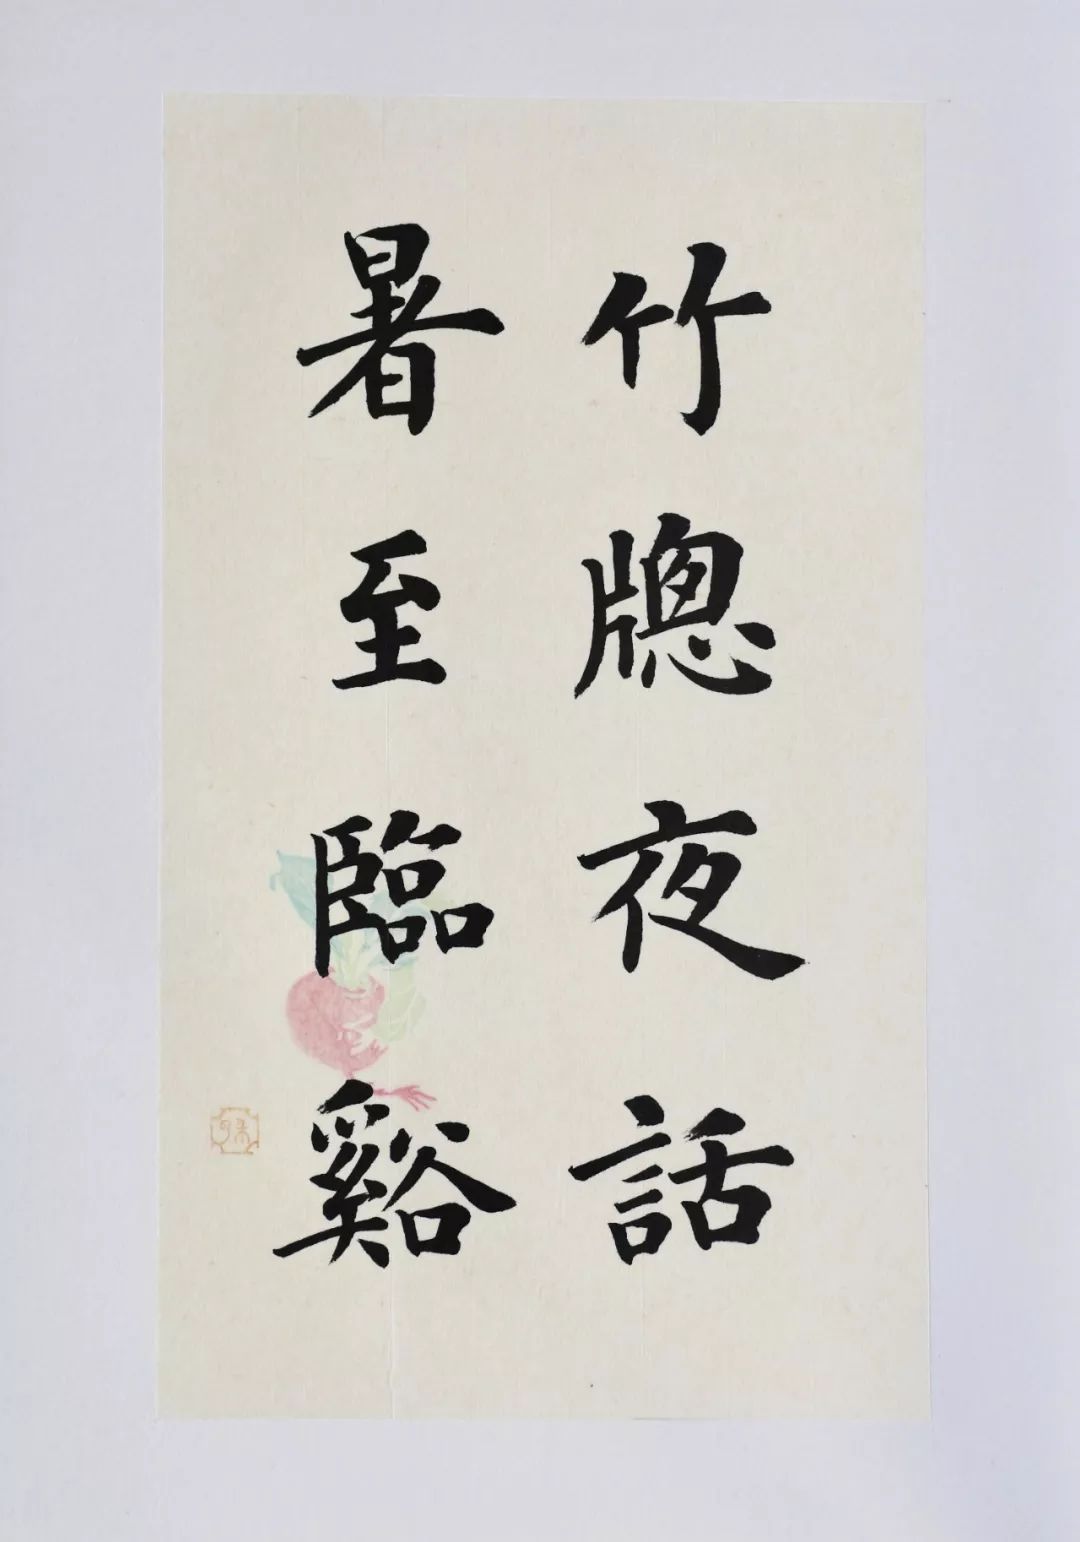 竹牕夜話
暑至臨谿